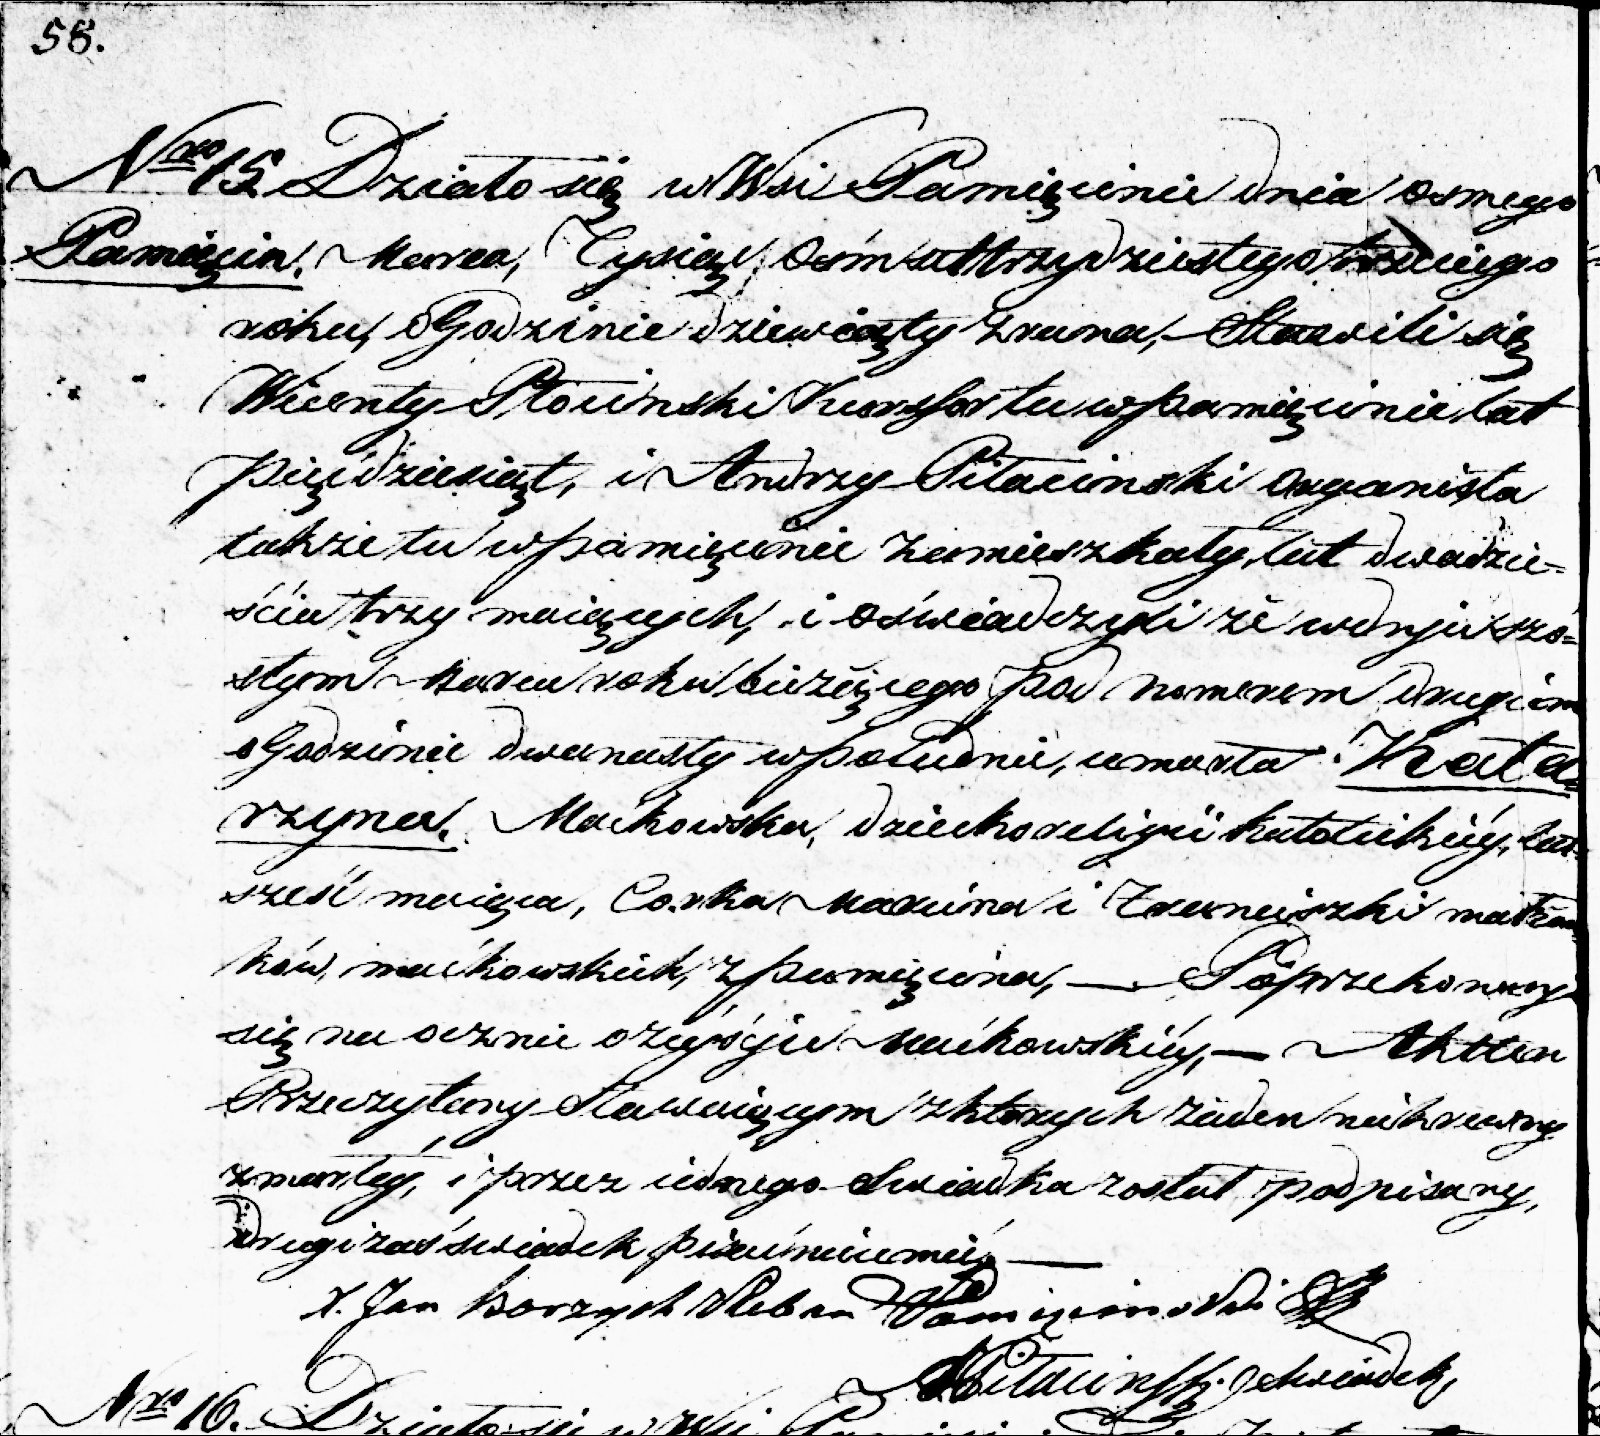 58.
Nro 15. Działo się w Wsi Pamięcinie dnia osmego
Pamięcin. Marca, Tysiąc, osmset trzydziestego trzeciego
roku, o Godzinie dziewiąty zrana, Stawili się
Wicenty Płociński tu w pamięcinie lat
pięcdziesiąt, i Andrzy Pitaciński organista
takze tu w pamięcinie zamieszkały, lat dwadzie=
ścia trzy maiących, i oświadczyli że w dniu szó=
stym Marca roku bieżącego pod nomerem drugim
o Godzinie dwanasty w południe, umarła Kata
rzyna Maćkowska, dziecko religii katolickiéy, lat
sześć maiąca, Corka Marcina i Franciszki małżon
ków, maćkowskich, z pamięcina, — Poprzekonany
się na ocznie o zeyściu Maćkowskiéy, — Akt ten
Przeczytany Stawaiącym z ktorych żaden niekrewny
zmarłéy, i przez iednego Swiadka został podpisany,
Drugi zaś świadek pisać nieumié —
X. Jan Borzych Pleban Pamięcinski
APitacinski świadek
Nro 16. Działo się w Wsi